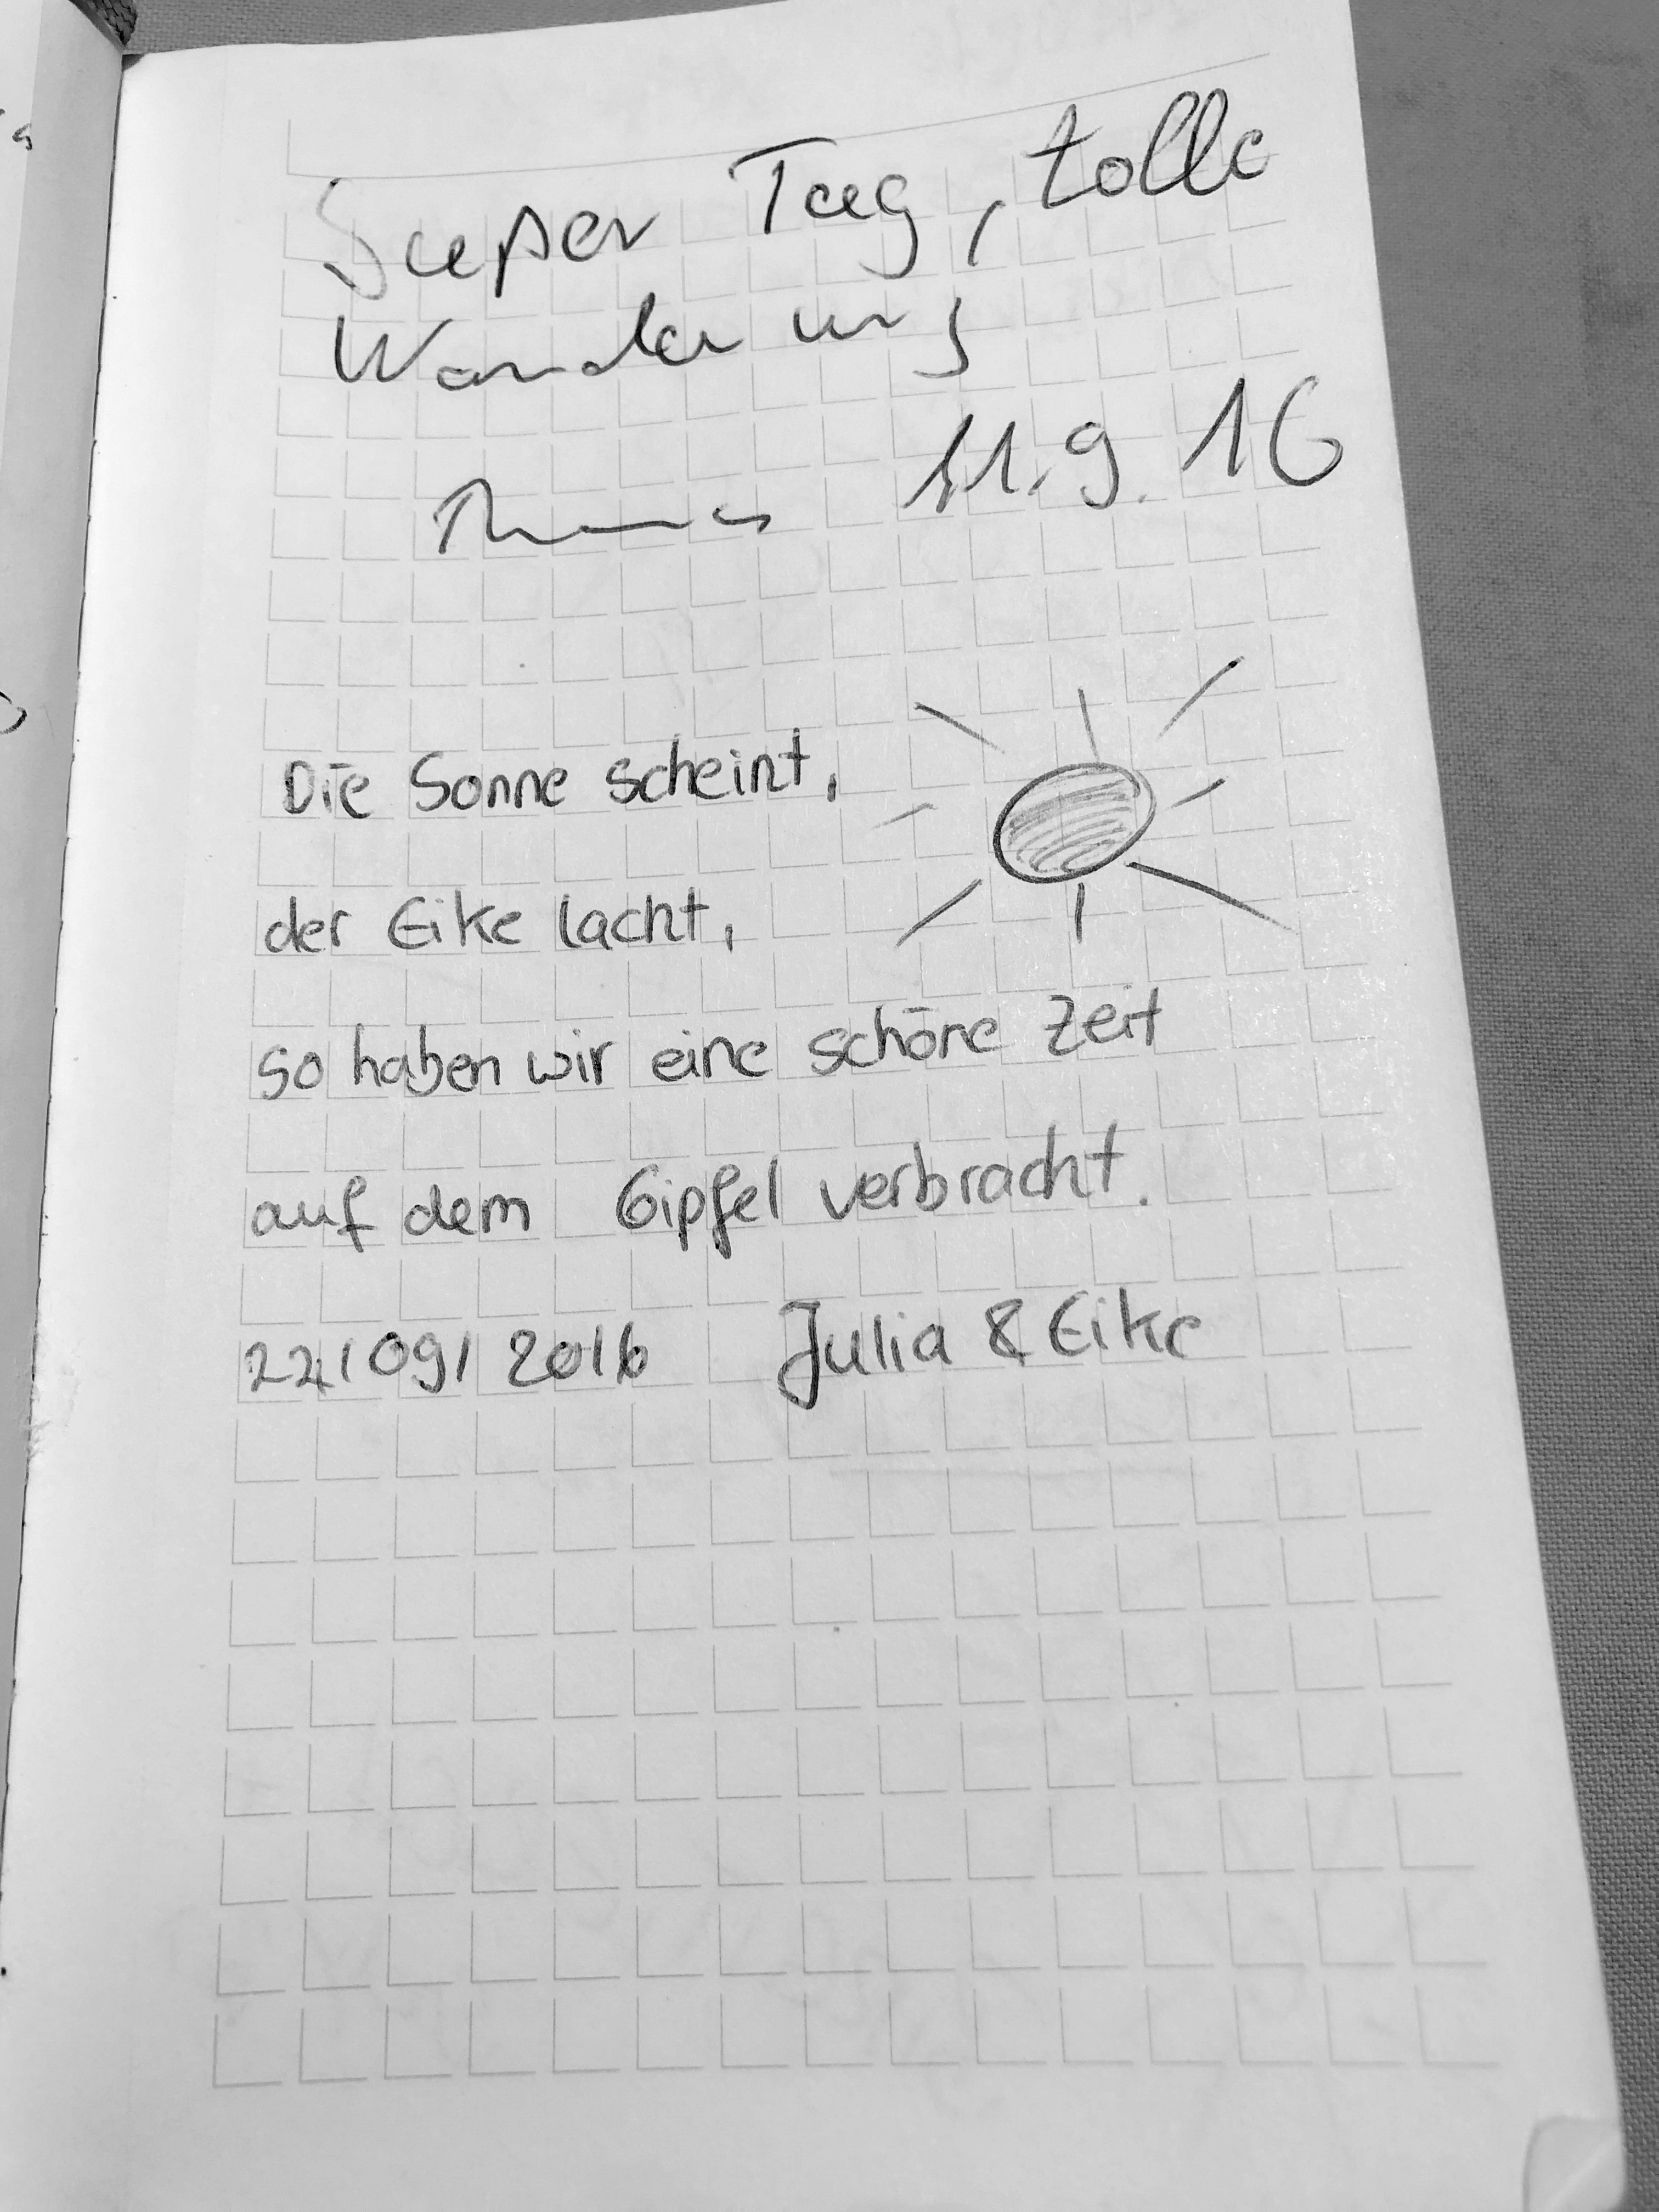 Super Tag, tolle
Wanderung
Thomas 11.9.16
Die Sonne scheint,
der Eike lacht,
so haben wir eine schöne Zeit
auf dem Gipfel verbracht.
22/09/2016 Julia & Eike